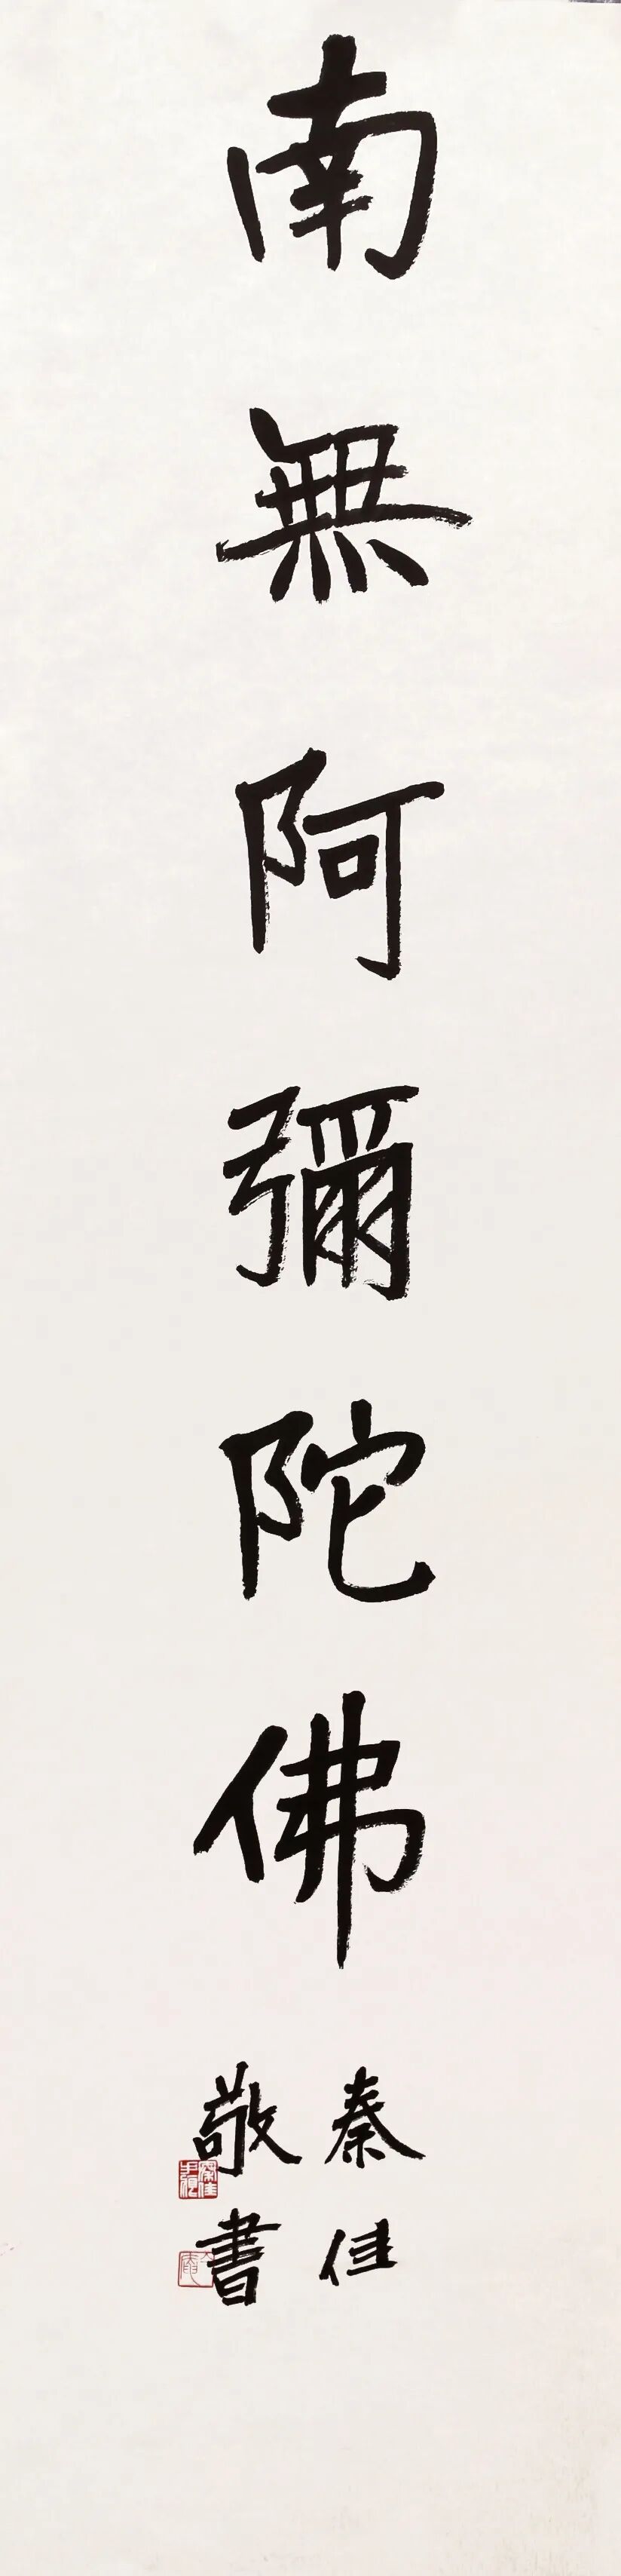 南無阿彌陀佛
秦佳
敬書